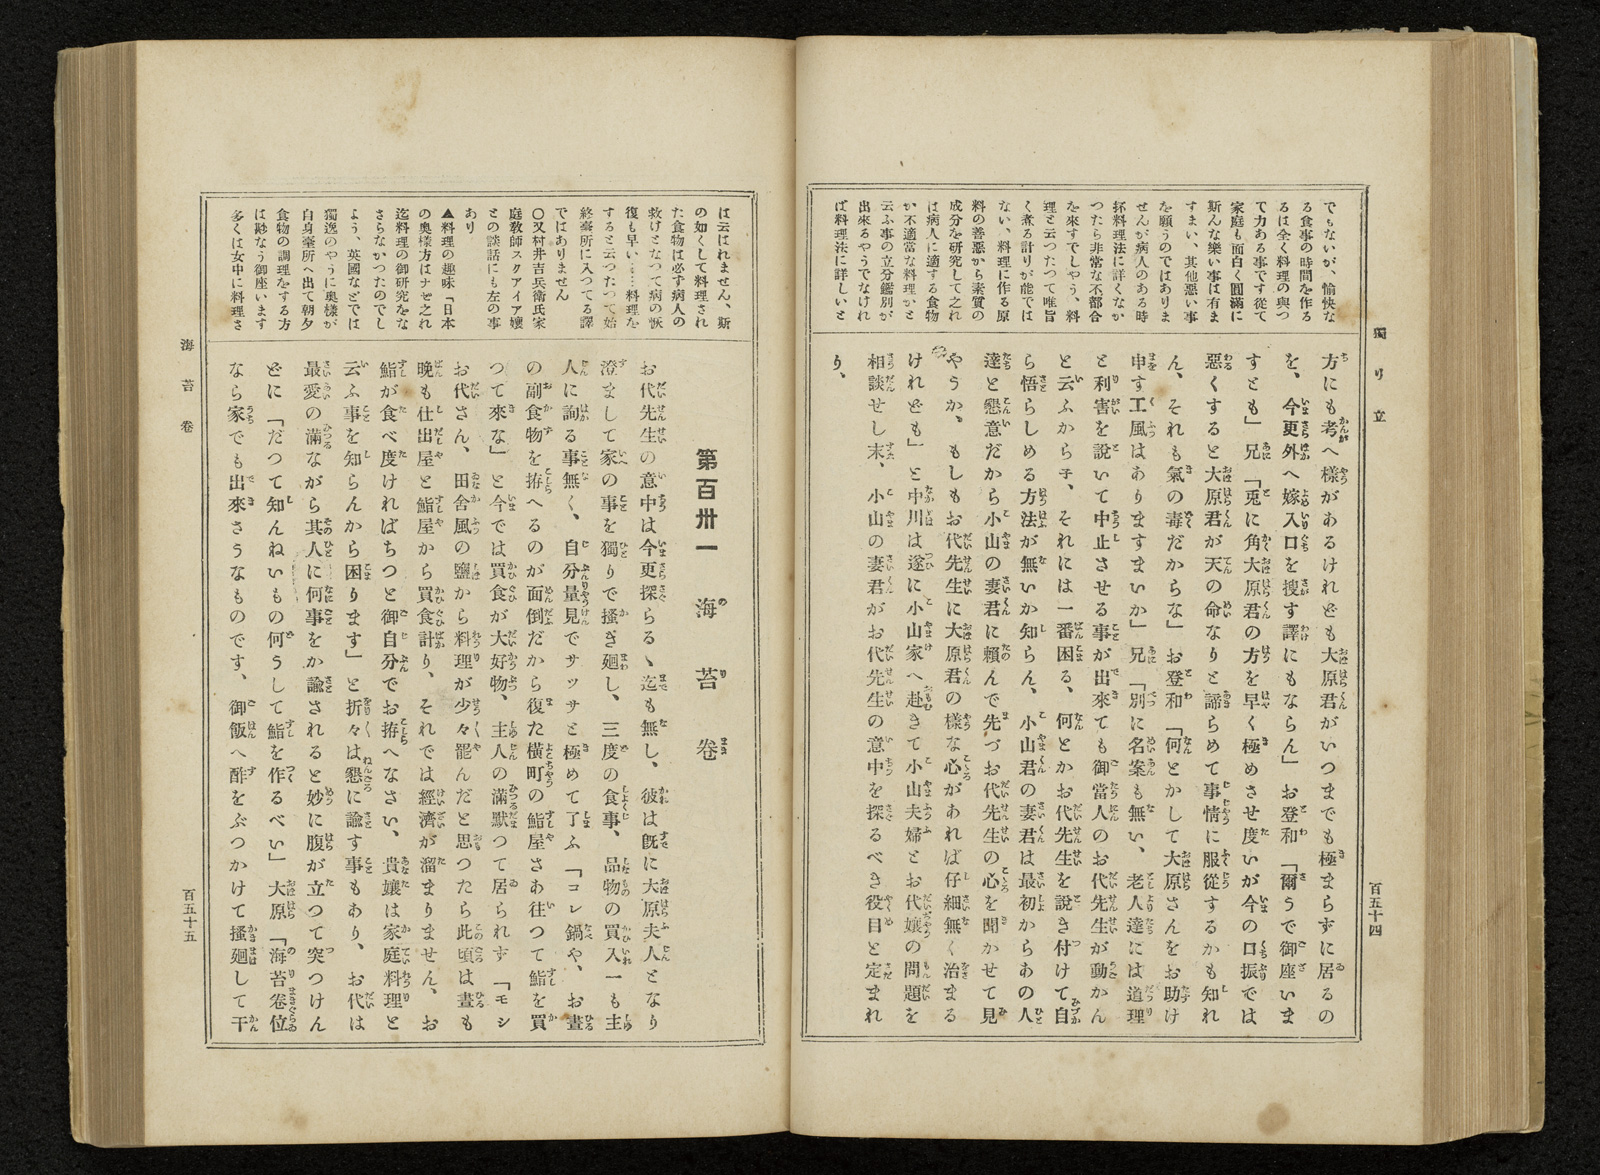 獨り立
百五十四
でもないが、愉快な
る食事の時間を作る
るは全く料理の與つ
て力ある事です從て
家庭も面白く圓滿に
斯んな樂い事は有ま
すまい、其他惡い事
を願うのではありま
せんが病人のある時
抔料理法に詳くなか
つたら非常な不都合
を來すでしやう、料
理と云つたつて唯旨
く煮る計りが能では
ない、料理に作る原
料の善惡から素質の
成分を研究して之れ
は病人に適する食物
か不適當な料理かと
云ふ事の立分鑑別が
出來るやうでなけれ
ば料理法に詳しいと
方にも考へ樣があるけれども大原君がいつまでも極まらずに居るの
を、今更外へ嫁入口を搜す譯にもならん」お登和「爾うで御座いま
すとも」兄「兎に角大原君の方を早く極めさせ度いが今の口振では
惡くすると大原君が天の命なりと諦らめて事情に服從するかも知れ
ん、それも氣の毒だからな」お登和「何とかして大原さんをお助け
申す工風はありますまいか」兄「別に名案も無い、老人達には道理
と利害を說いて中止させる事が出來ても御當人のお代先生が動かん
と云ふから子、それには一番困る、何とかお代先生を說き付けて自
ら悟らしめる方法が無いか知らん、小山君の妻君は最初からあの人
達と懇意だから小山の妻君に賴んで先づお代先生の心を聞かせて見
やうか、もしもお代先生に大原君の樣な心があれば仔細無く治まる
けれども」と中川は遂に小山家へ赴きて小山夫婦とお代孃の問題を
相談せし末、小山の妻君がお代先生の意中を探るべき役目と定まれ
り、
は云はれません、斯
の如くして料理され
た食物は必ず病人の
救けとなつて病の恢
復も早い……料理を
すると云つたつて始
終臺所に入つてる譯
ではありません
〇又村井吉兵衛氏家
庭敎師スクアイア孃
との談話にも左の事
あり
▲料理の趣味「日本
の奥樣方はナゼ之れ
迄料理の御研究をな
さらなかつたのでし
よう、英國などでは
獨逸のやうに奥樣が
自身臺所へ出て朝夕
食物の調理をする方
は尠なう御座います
多くは女中に料理さ
第百卅一　海苔卷
お代先生の意中は今更探らるゝ迄も無し、彼は旣に大原夫人となり
澄まして家の事を獨りで搔ぎ廻し、三度の食事、品物の買入一も主
人に詢る事無く、自分量見でサツサと極めて了ふ「コレ鍋や、お晝
の副食物を拵へるのが面倒だから復た橫町の鮨屋さあ往つて鮨を買
つて來な」と今では買食が大好物、主人の滿默つて居られず「モシ
お代さん、田舍風の鹽から料理が少々罷んだと思つたら此頃は晝も
晩も仕出屋と鮨屋から買食計り、それでは經濟が溜まりません、お
鮨が食べ度ければちつと御自分でお拵へなさい、貴孃は家庭料理と
云ふ事を知らんから困ります」と折々は懇に諭す事もあり、お代は
最愛の滿ながら其人に何事をか諭されると妙に腹が立つて突つけん
どに「だつて知んねいもの何うして鮨を作るべい」大原「海苔卷位
なら家でも出來さうなものです、御飯へ酢をぶつかけて搔廻して干
海苔卷
百五十五